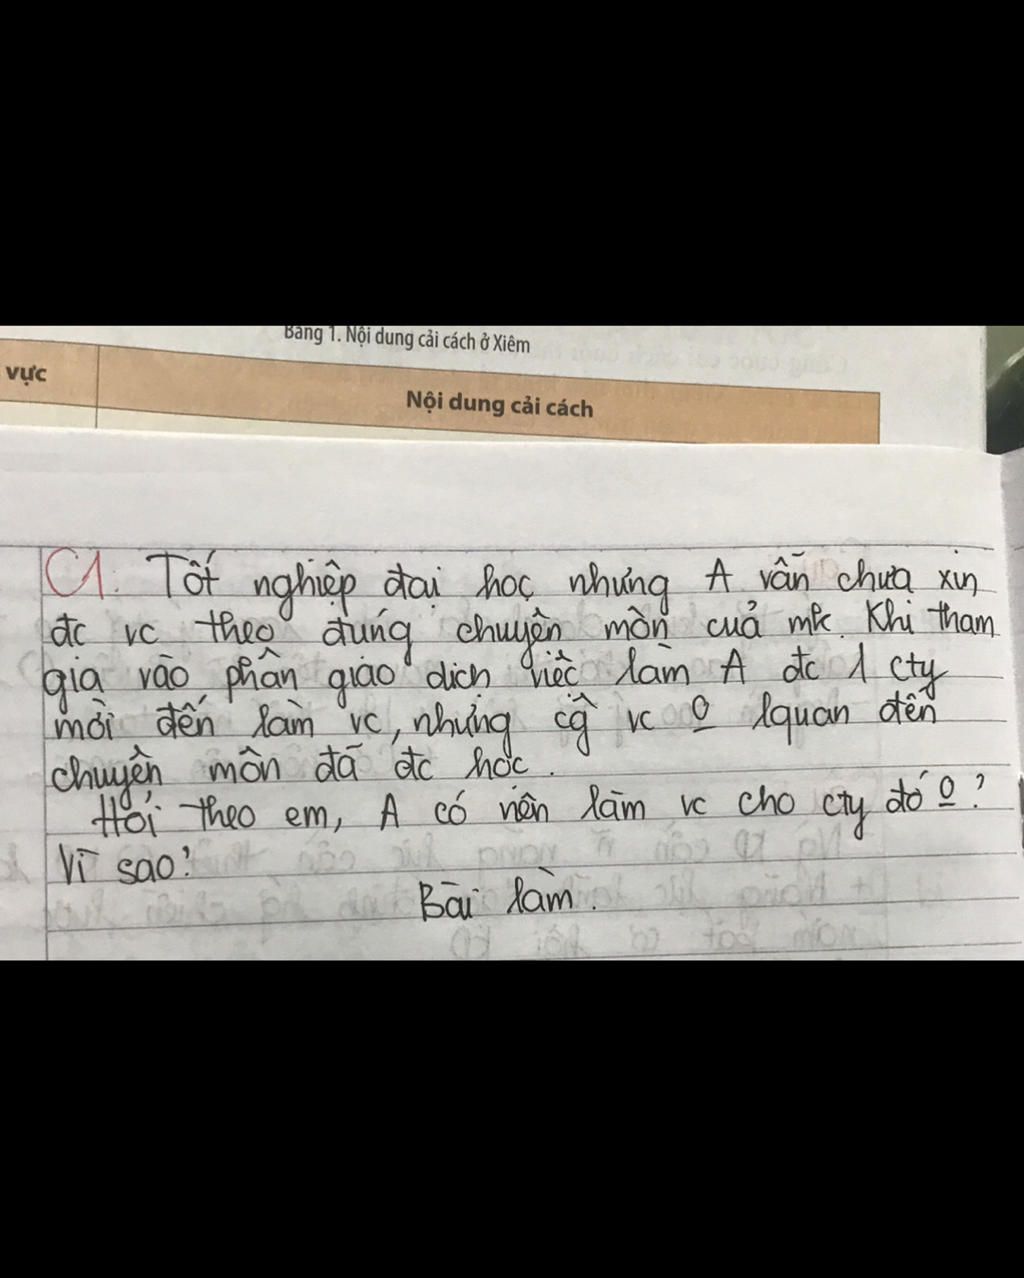 Bảng 1. Nội dung cải cách ở Xiêm
vực
Nội dung cải cách
C1. Tốt nghiệp đại học nhưng A vẫn chưa xin
đc vc theo đúng chuyên môn của mk. Khi tham
gia vào phần giao dịch việc làm A đc 1 cty
mời đến làm vc, nhưng cg vc 0 lquan đến
chuyên môn đã đc học.
Hỏi theo em, A có nên làm vc cho cty đó 0?
Vì sao?
Bài làm.